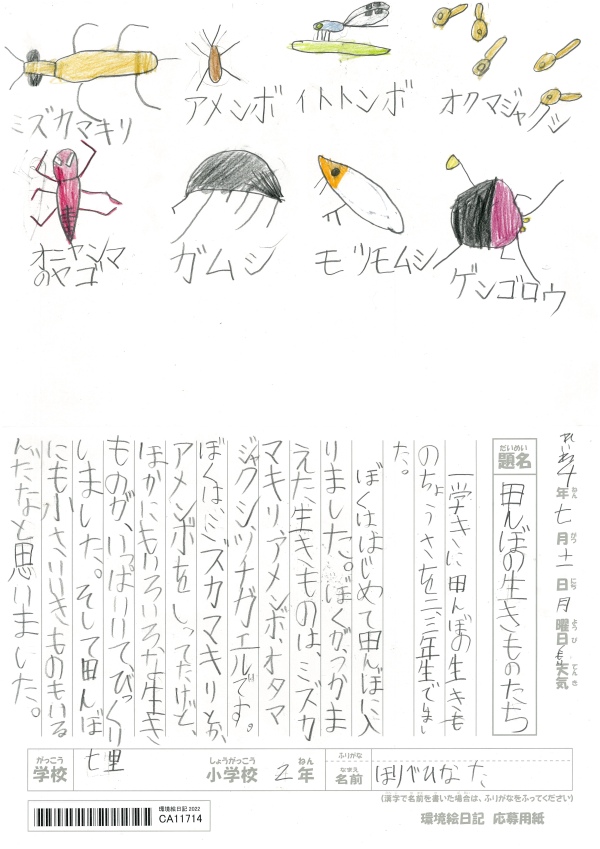 ミズカマキリ
アメンボ
イトトンボ
オクマジャクシ
オニヤンマ
のヤゴ
ガムシ
モツモムシ
ゲンゴロウ
れいわ4年七月十一日月曜日
ねん がつ にち ようび てんき
天気
だいめい
題名
田んぼの生きものたち
一学きに田んぼの生きも
のちょうさを二、三年生でまし
た。
ぼくははじめて田んぼに入
りました。ぼくがつかま
えた生きものは、ミズカ
マキリ、アメンボ、オタマ
ジャクシ、ツチガエルです。
ぼくは、ミズカマキリとか、
アメンボをしってたけど、
ほかにもいろいろな生き
ものが、いっぱいいて、びっくり
しました。そして田んぼ
にも小さいいきものもいる
んだなと思いました。
がっこう
学校
七里
しょうがっこう
小学校
2
ねん
年
ふりがな
なまえ
名前
ほりべひなた
(漢字で名前を書いた場合は、ふりがなをふってください)
環境絵日記 2022
CA11714
環境絵日記 応募用紙